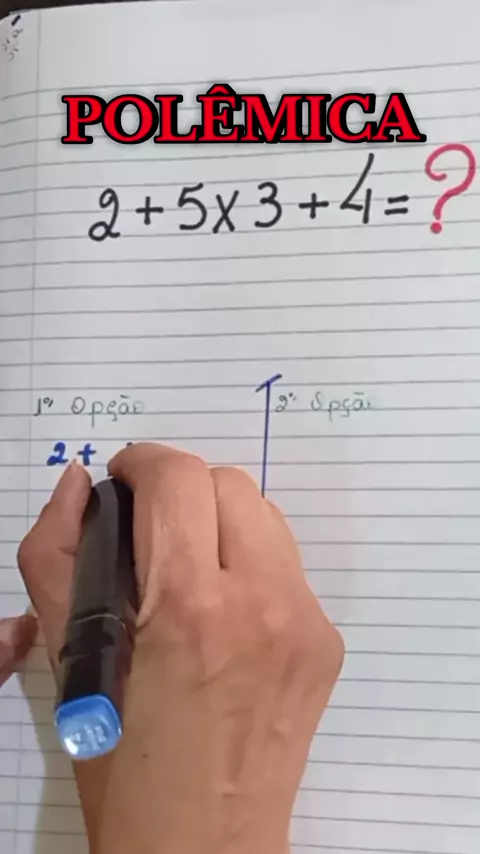 POLÊMICA
2+5x3+4=?
1ª Opção
2ª Opção
2+